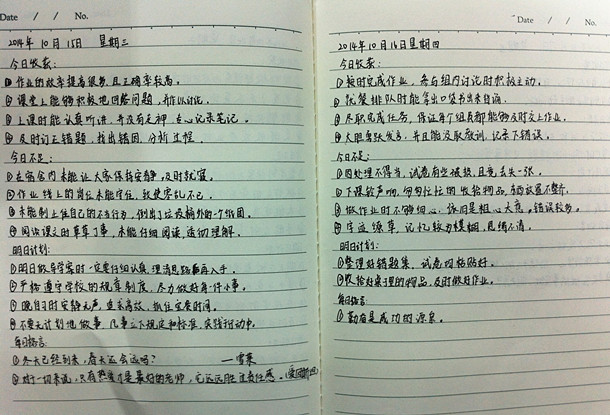 Date / / No.
2014年 10月 15日 星期三
今日收获:
①作业的效率提高很多,且正确率较高。
②课堂上能够积极地回答问题,并作以讨论。
③上课时能认真听讲,并没有走神,专心记录笔记。
④及时订正错题,找出错因,分析过程。
今日不足:
①在宿舍内未能让大家保持安静,及时就寝。
②作业线上的岗位未能守住,致使案乱不已。
③未制止住自己的不当行为,倒出了垃圾桶外的个纸团。
④阅读课文时草草了事,未能仔细阅读,透彻理解。
明日计划:
①明日做导学案时一定要仔细认真,理清思路再入手。
②严格遵守学校的规章制度,尽力做好每件小事。
③晚自习时安静无声,追求高效,抓住宝贵时间。
④不要无计划地做事,凡事立下规定和标准,实践于行动中。
每日格言:
①冬天已经到来,春天还会远吗? —雪莱
②对于一切来说,只有热爱才是最好的老师,它远远胜过责任感。(爱因斯坦)
Date / / No.
2014年10月16日星期四
今日收获:
①按时完成作业,参与组内讨论时积极主动。
②就餐排队时能拿出口袋书来自诵。
③尽职完成任务,保证每个组员都能够及时交上作业。
④大胆踊跃发言,并且能汲取教训,记录下错误。
今日不足:
①因处理不得当,试卷有些破损,且丢去失一张。
②下课铃声响,匆匆忙忙的收拾物品,书摆放置不整齐。
③做作业时不够细心,依旧是粗心大意,错误较多。
④字迹潦草,记忆较为模糊,思绪不清。
明日计划:
①整理好错题集,试卷均粘贴好。
②收拾好桌里的物品,及时做好作业。
每日格言:
①勤奋是成功的源泉。